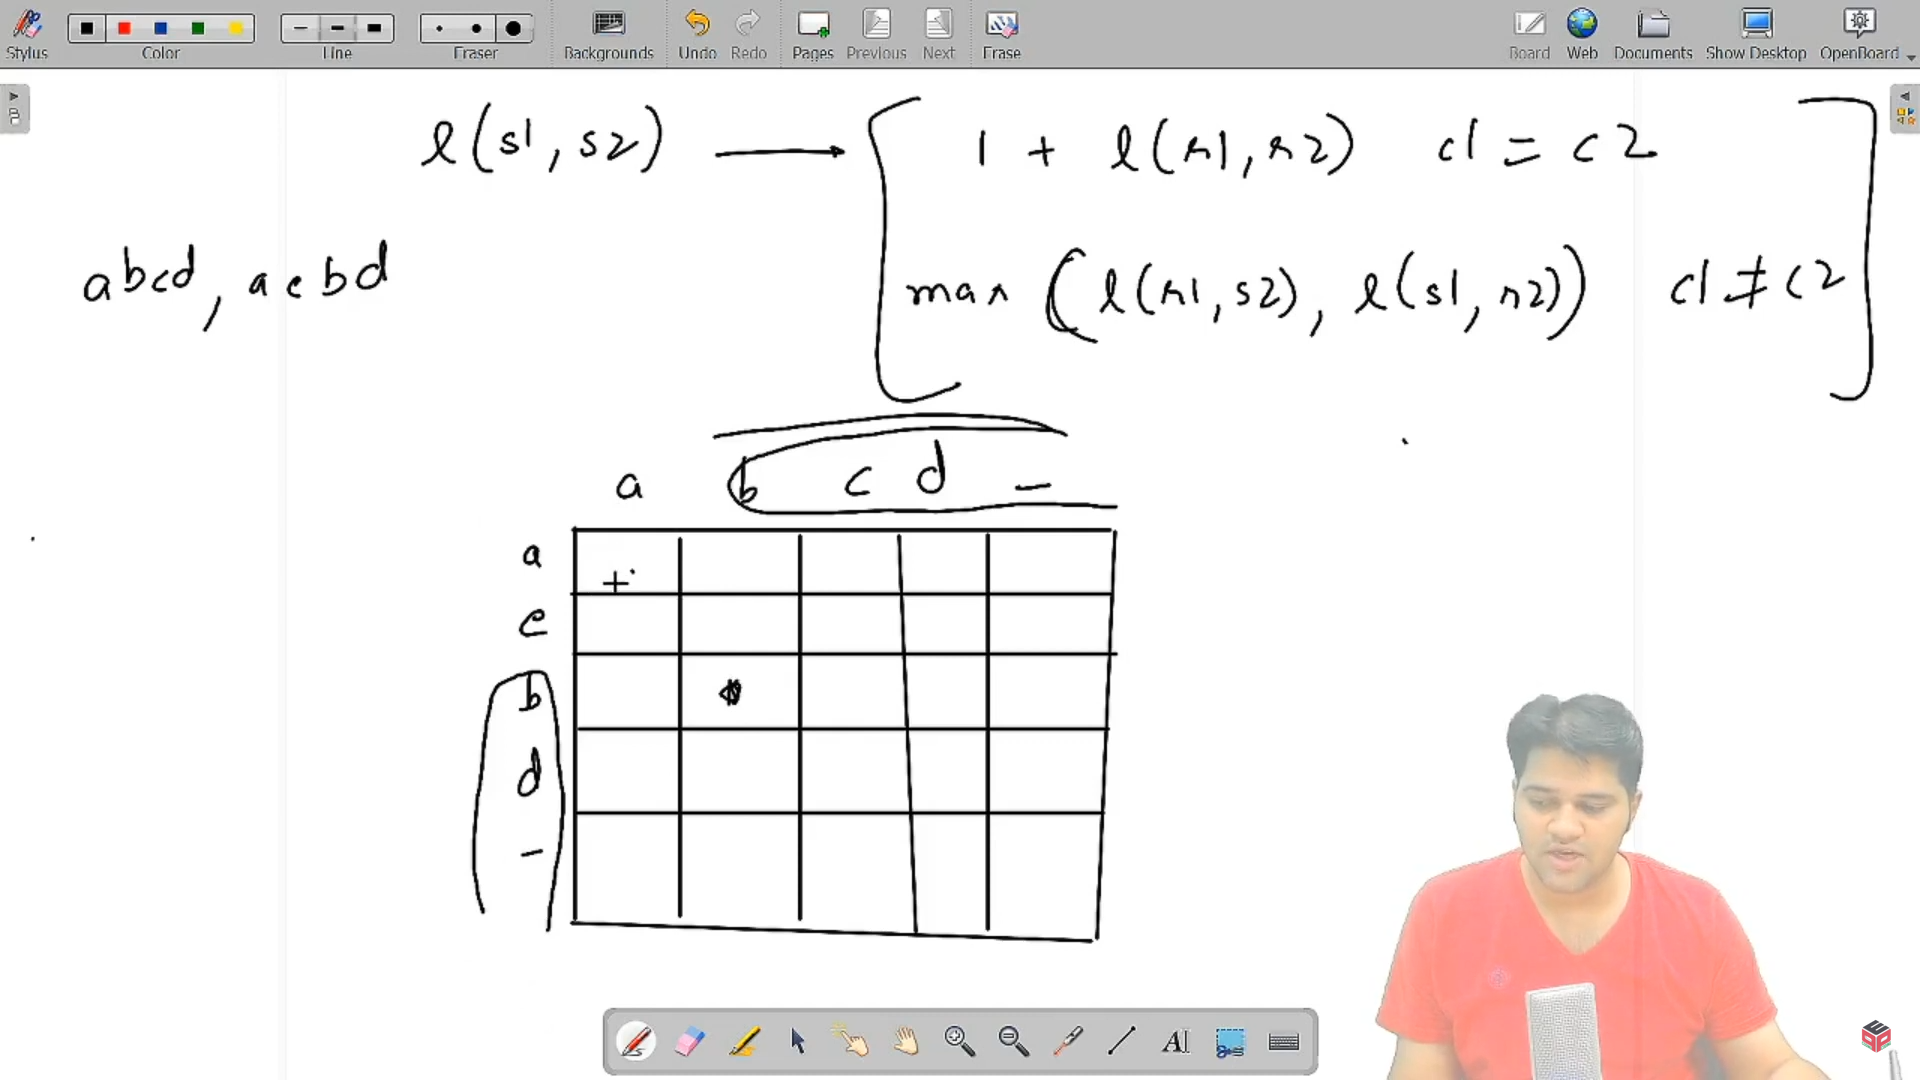 Stylus Color Line Eraser Backgrounds Undo Redo Pages Previous Next Erase Board Web Documents Show Desktop OpenBoard
l(s1, s2) → 1 + l(r1, r2) c1 = c2
abcd, acbd
max (l(r1, s2), l(s1, r2)) c1 ≠ c2
a b c d –
a
c
b
d
–